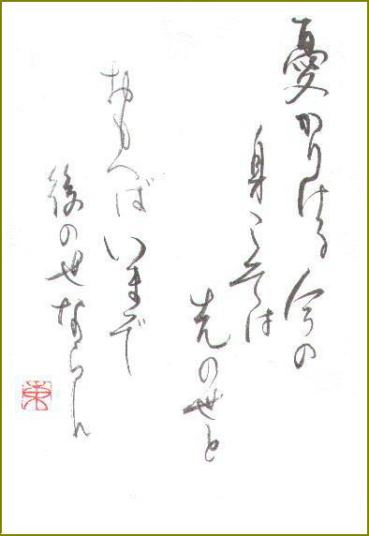 憂かりける 今の
身こそは
先の世と
おもへば いまぞ
後の世ならん
東